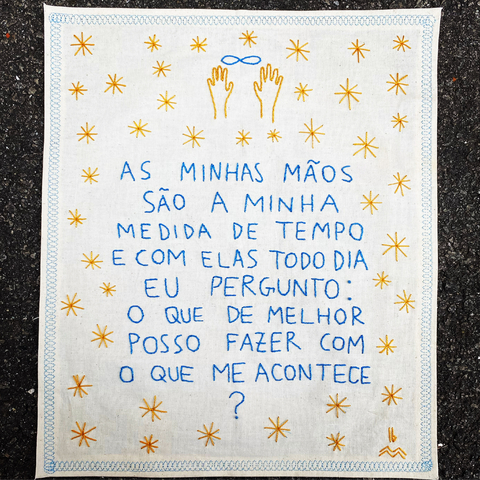 AS MINHAS MÃOS
SÃO A MINHA
MEDIDA DE TEMPO
E COM ELAS TODO DIA
EU PERGUNTO:
O QUE DE MELHOR
POSSO FAZER COM
O QUE ME ACONTECE
?